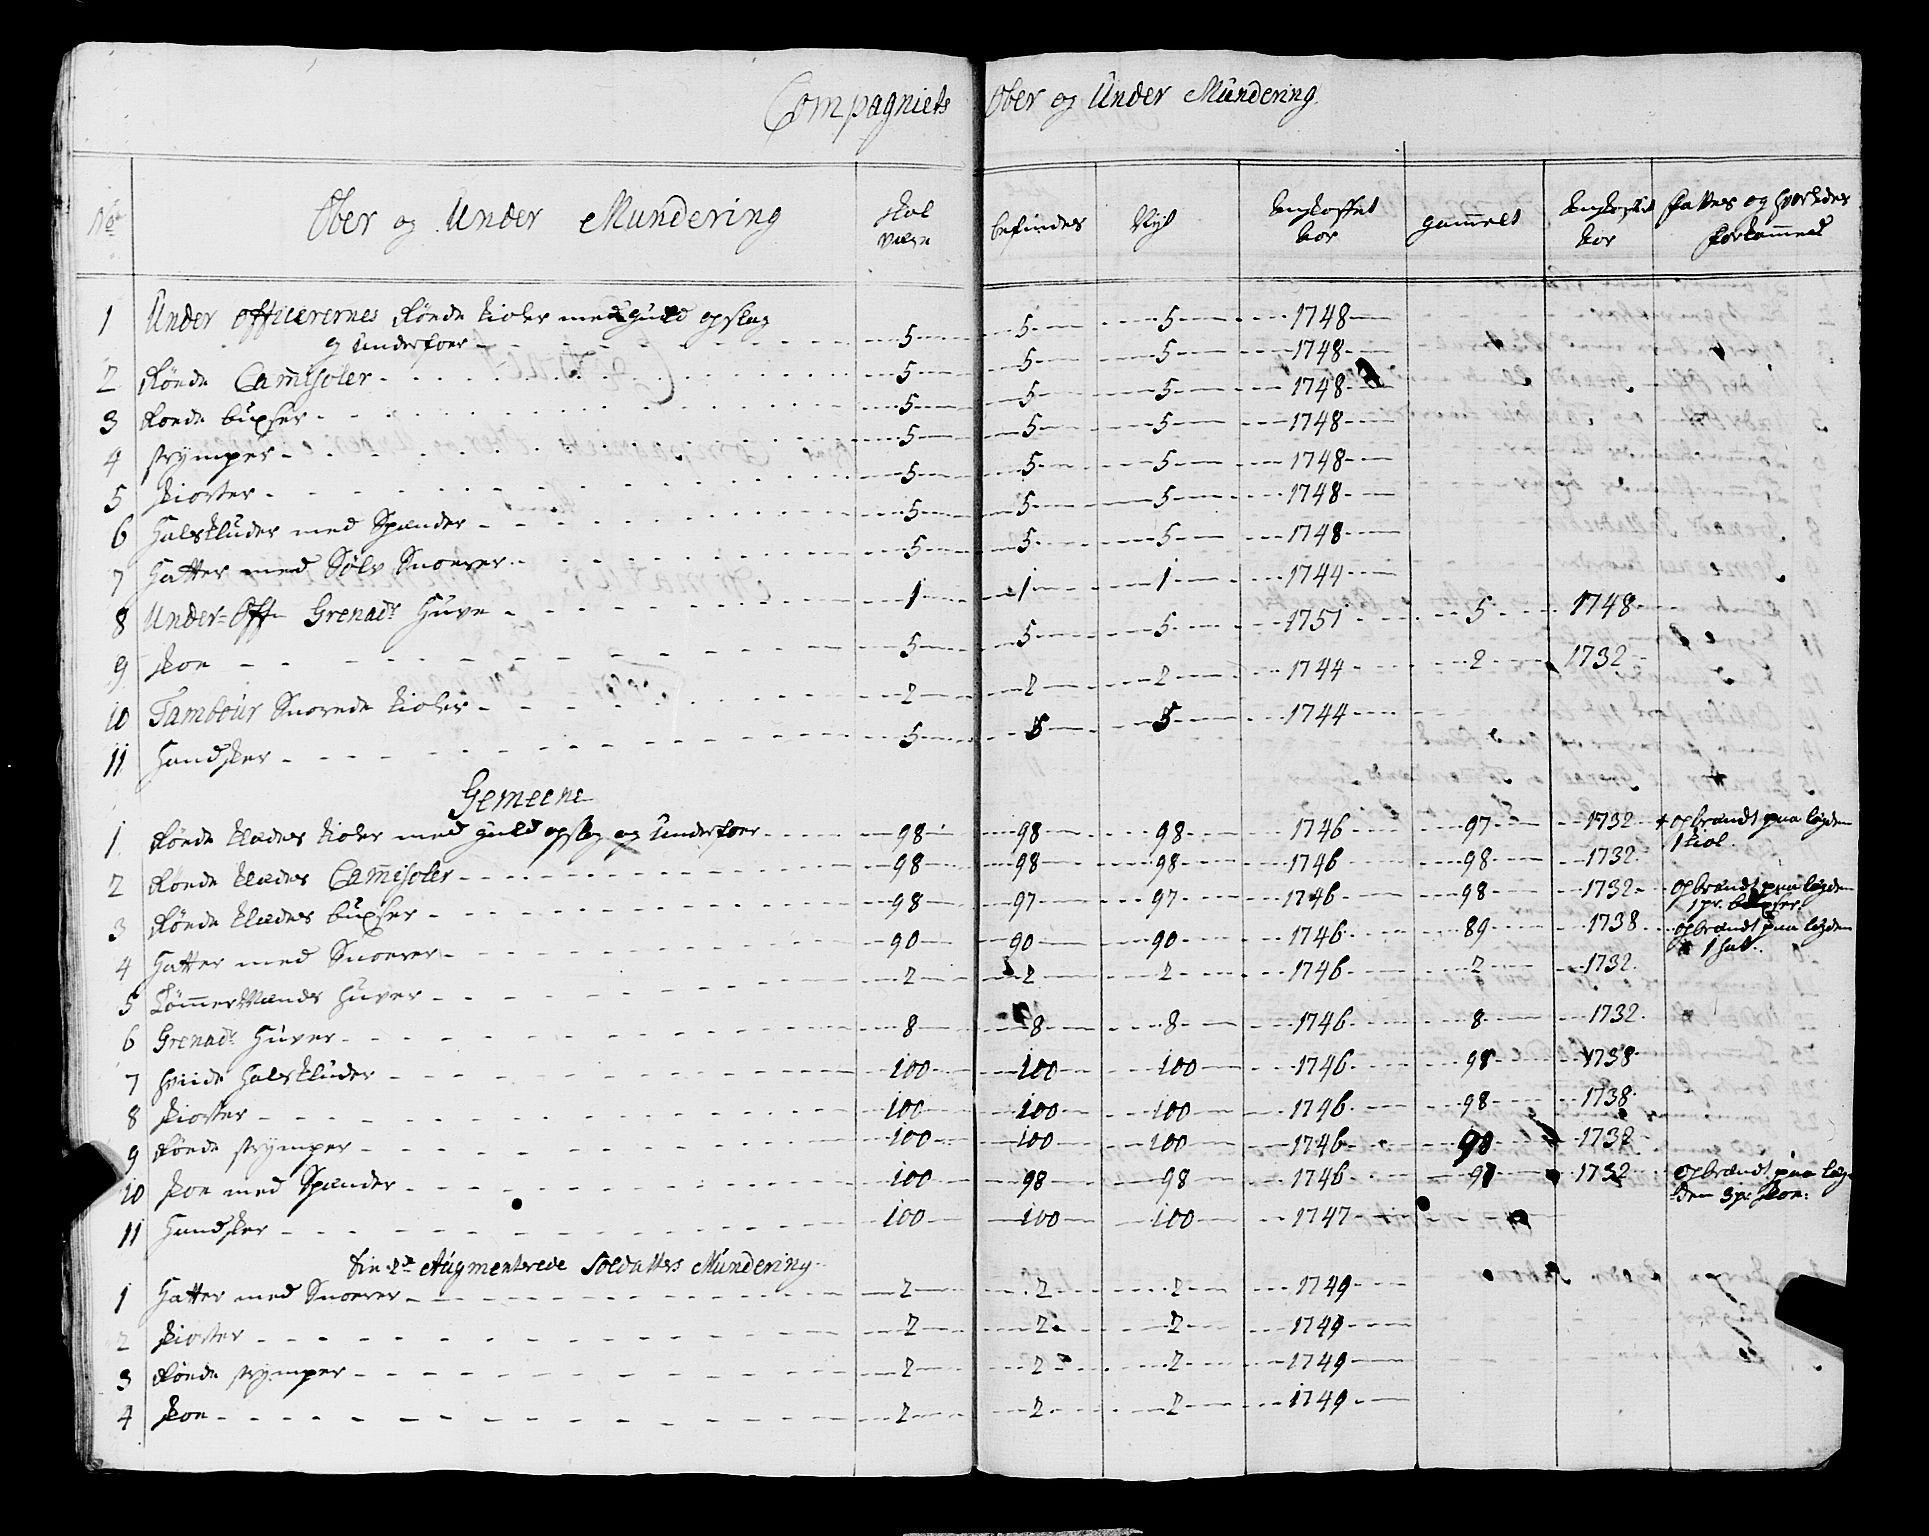 Compagniets Ober og Under Mundering.
No Ober og Under Mundering skal være befindes Nyt Anskoffet aar gammelt Anskoffet aar fattes og hvorledes forkommet
1 Under officerernes Rönde kioler med guld opslag
og underfoer 5 5 5 1748
2 Rönde Camisoler 5 5 5 1748
3 Rönde buxser 5 5 5 1748
4 strymper 5 5 5 1748
5 skiorter 5 5 5 1748
6 Halskluder med Spænder 5 5 5 1748
7 Hatter med Sölv Snoerer 5 5 5 1748
8 Under-Off Grenadr Huve 1 1 1 1744
9 skoe 5 5 5 1751 5 1748
10 Tambour Snorede kioler 2 2 2 1744 2 1732
11 Handsker 5 5 5 1744
Gemeene
1 Rönde klædes kioler med guld opslag og underfoer 98 98 98 1746 97 1732 + opbrændt paa lægden
1 kiol.
2 Rönde klædes Camisoler 98 98 98 1746 98 1732
3 Rönde klædes buxser 98 97 97 1746 98 1732 opbrændt paa lægden
1 pr. buxser
4 Hatter med Snoerer 90 90 90 1746 89 1738 opbrændt paa lægden
1 hat
5 Tömmermænds Huver 2 2 2 1746 2 1732
6 Grenadr Huver 8 8 8 1746 8 1732
7 hviide Halskluder 100 100 100 1746 98 1738
8 skiorter 100 100 100 1746 98 1738
9 Rönde strymper 100 100 100 1746 98 1738
10 skoe med Spænder 100 98 98 1746 97 1732 opbrændt paa læg-
den 3 pr skoe:
11 Handsker 100 100 100 1747
Die 2de Augmenterede Soldatters Mundering
1 Hatter med Snoerer 2 2 2 1749
2 skiorter 2 2 2 1749
3 Rönde strymper 2 2 2 1749
4 skoe 2 2 2 1749